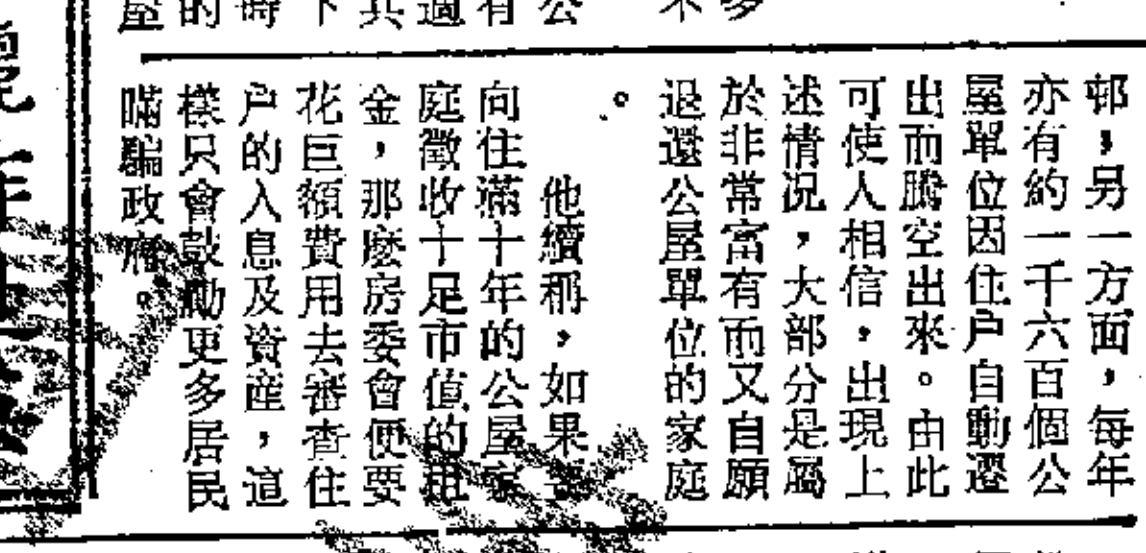 邨，另一方面，每年
亦有約一千六百個公
屋單位因住户自動遷
出而騰空出來。由此
可使人相信，出現上
述情況，大部分是屬
於非常富有而又自願
退還公屋單位的家庭
。
他續稱，如果要
向住滿十年的公屋家
庭徵收十足市值的租
金，那麽房委會便要
花巨額費用去審查住
户的入息及資產，這
樣只會鼓勵更多居民
瞞騙政府。